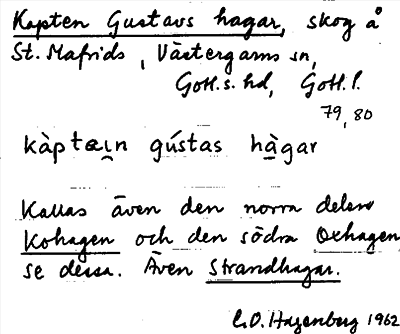 Kapten Gustavs hagar, skog å
St. Mafrids, Västergarns sn,
Gotl. s. hd, Gotl. l.
79, 80
kàptæi̯n gústas hà̲gar
Kallas även den norra delen
Kohagen och den södra Oxhagen
se dessa. Även Strandhagar.
C.O. Hagenberg 1962